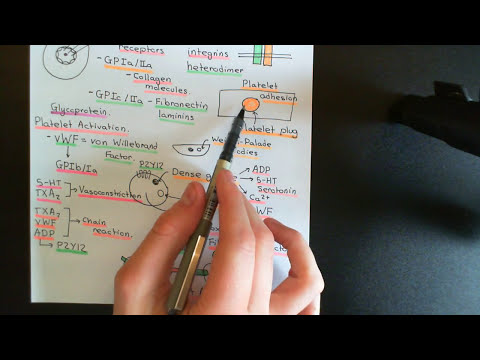 receptors
integrins
- GPIa/IIa
heterodimer
- Collagen
molecules.
- GPIc/IIa - Fibronectin
laminins
Glycoprotein.
Platelet
adhesion
Platelet plug
Platelet Activation.
- vWF = von Willebrand
Factor.
GPIb/Ia
P2Y12
Dense
ADP
5-HT
Serotonin
Ca2+
5-HT
TXA2
Vasoconstriction
TXA2
VWF
ADP
Chain
reaction.
P2Y12